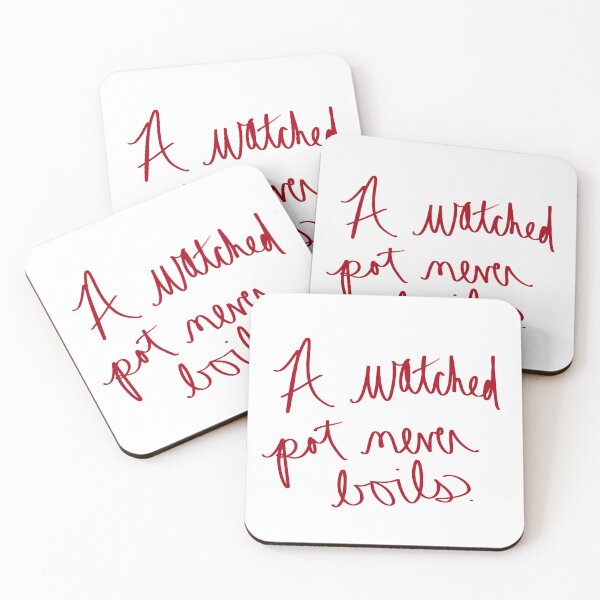 A watched
A watched
pot never
A watched
pot never
A watched
pot never
boils.